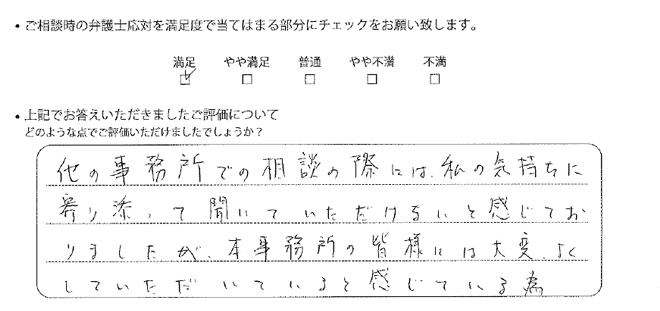 ・ご相談時の弁護士応対を満足度で当てはまる部分にチェックをお願い致します。
満足 やや満足 普通 やや不満 不満
・上記でお答えいただきましたご評価について
どのような点でご評価いただけましたでしょうか？
他の事務所での相談の際には、私の気持ちに
寄り添って聞いていただけるいと感じてお
りましたが、本事務所の皆様には大変、よく
していただいていると感じている為